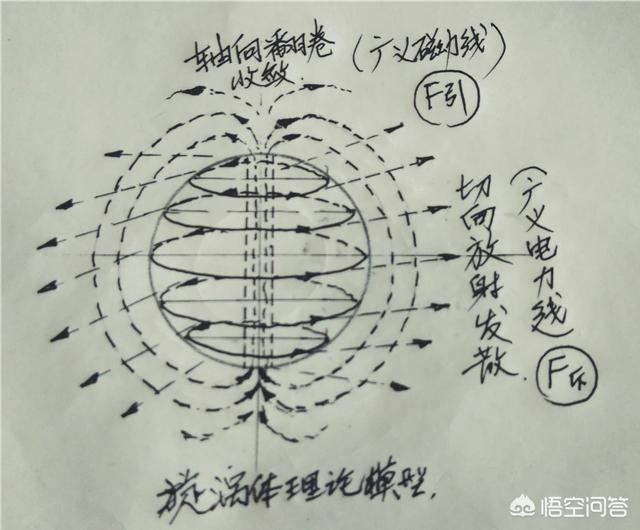 轴向翻卷
收敛
(广义磁力线)
F引
切向放射发散.
(广义电力线)
F斥
旋涡体理论模型.
悟空问答